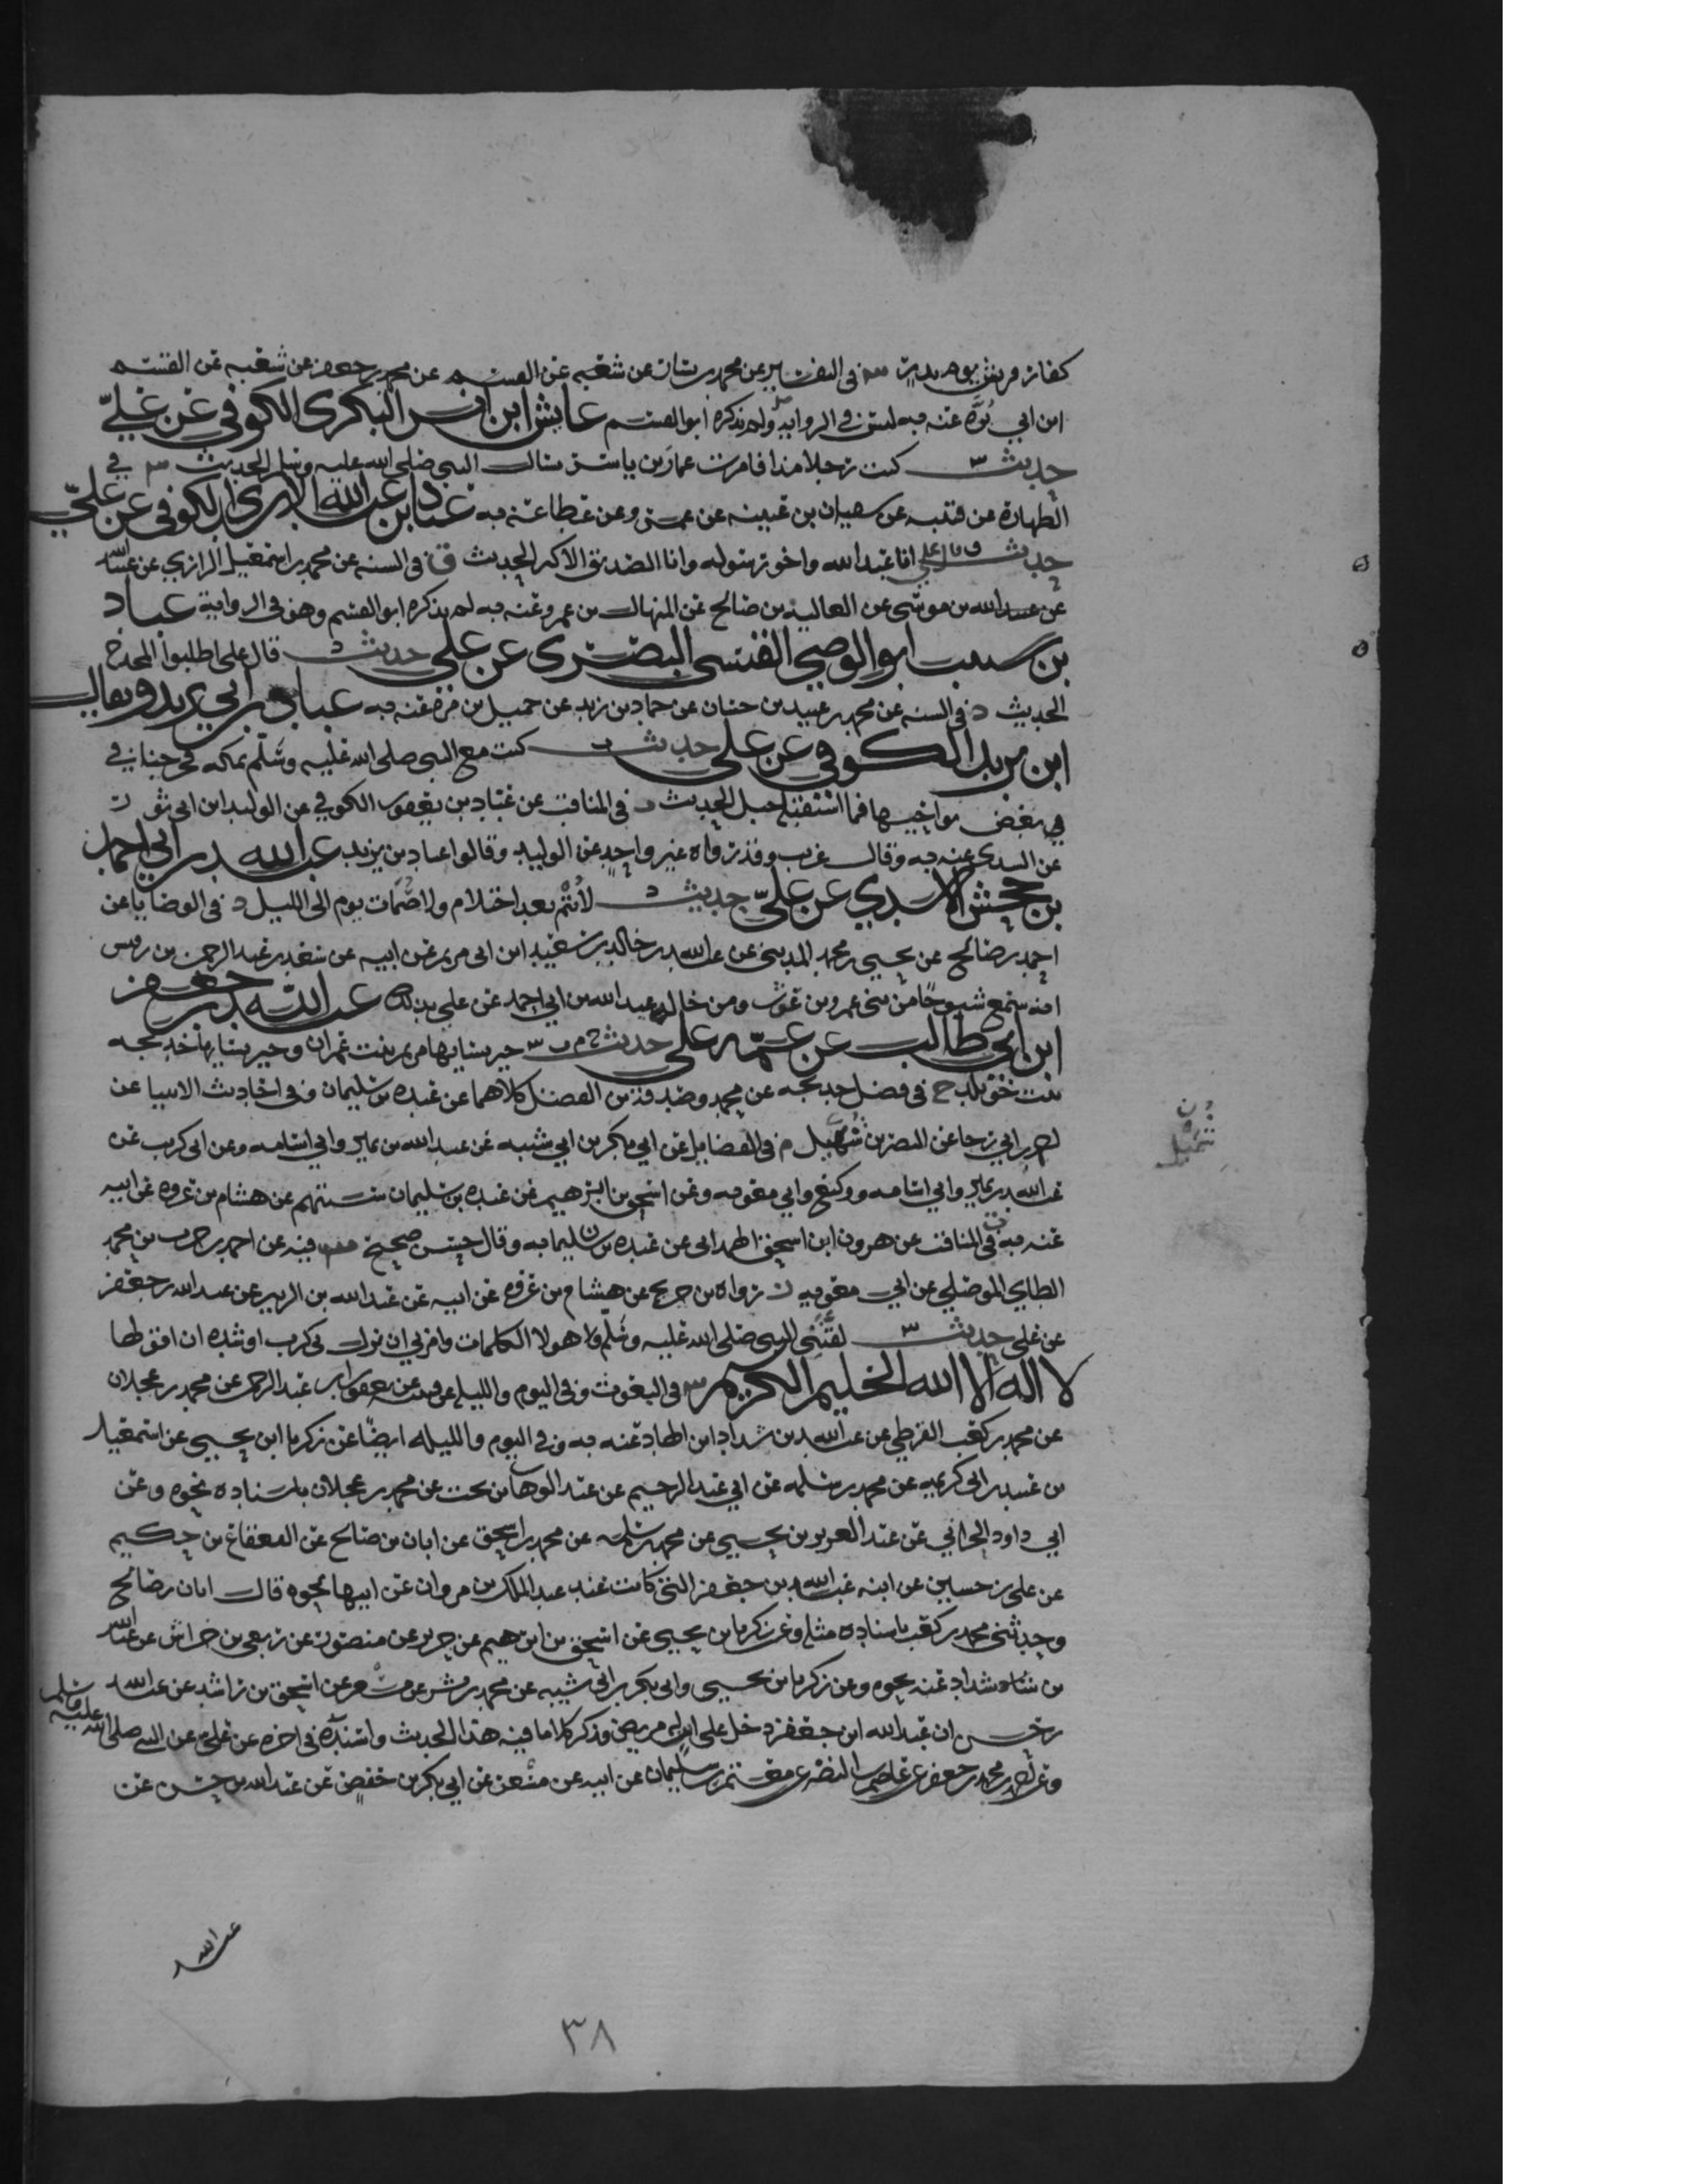 كفار قريش يوم بدر س في التفسير عن محمد بن بشار عن شعبه عن القسم عن محمد بن جعفر عن شعبه عن القسم
ابن ابي بزه عنه به ليس في الرواية ولم يذكره ابو القسم عايش ابن انس البكري الكوفي عن علي
حديث س كنت رجلا مذا فامرت عمار بن ياسر يسال النبي صلى الله عليه وسلم الحديث س في
الطهارة عن قتيبه عن سفيان بن عيينه عن عمرو عن عطا عنه به عباد بن عبد الله الاسدي الكوفي عن علي
حديث قال علي انا عبد الله واخو رسوله وانا الصديق الاكبر الحديث ق في السنه عن محمد بن اسمعيل الرازي عن
عن عبيد الله بن موسى عن العلا بن صالح عن المنهال بن عمرو عنه به لم يذكره ابو القسم وهو في الرواية عباد
بن نسيب ابو الوضي القيسي البصري عن علي حديث د قال علي اطلبوا المخدج
الحديث د في السنه عن محمد بن عبيد بن حسان عن حماد بن زيد عن جميل بن مره عنه به عباد بن ابي يزيد ويقال
ابن يزيد الكوفي عن علي حديث ت كنت مع النبي صلى الله عليه وسلم بمكه فخرجنا في
في بعض نواحيها فما استقبله جبل الحديث ت في المناقب عن عباد بن يعقوب الكوفي عن الوليد ابن ابي ثور
عن السدي عنه به وقال غريب وقد رواه غير واحد عن الوليد وقالوا عباد بن يزيد عبد الله بن ابي احمد
بن جحش الاسدي عن علي حديث د لا يتم بعد احتلام ولا صمات يوم الى الليل د في الوصايا عن
احمد بن صالح عن يحيى بن محمد المديني عن عبد الله بن خالد بن سعيد ابن ابي مريم عن ابيه عن سعيد بن عبد الرحمن بن رقيش
انه سمع شيوخا من بني عمرو بن عوف ومن خاله عبد الله بن ابي احمد عن علي بذلك عبد الله بن جعفر
ابن ابي طالب عن عمه علي حديث خ م ت س خير نسايها مريم بنت عمران وخير نسايها خديجه
بنت خويلد خ في فضل خديجه عن محمد وصدقه بن الفضل كلاهما عن عبده بن سليمان وفي احاديث الانبيا عن
احمد بن ابي رجا عن النضر بن شميل م في الفضايل عن ابي بكر بن ابي شيبه عن عبد الله بن نمير وابي اسامه وعن ابي كريب عن
عبد الله بن نمير وابي اسامه ووكيع وابي معويه وعن اسحق بن ابرهيم عن عبده بن سليمان ستتهم عن هشام بن عروه عن ابيه
عنه به ت في المناقب عن هرون ابن اسحق الهمداني عن عبده بن سليمان به وقال حسن صحيح س فيه عن احمد بن حرب بن محمد
الطايي الموصلي عن ابي معويه رواه بن جريج عن هشام بن عروه عن ابيه عن عبد الله بن الزبير عن عبد الله بن جعفر
عن علي حديث س لقنني النبي صلى الله عليه وسلم هولا الكلمات وامرني ان نزل بي كرب او شده ان اقولها
لا اله الا الله الحليم الكريم س في البعوث وفي اليوم والليله عن قتيبه عن يعقوب بن عبد الرحمن عن محمد بن عجلان
عن محمد بن كعب القرظي عن عبد الله بن شداد ابن الهاد عنه به وفي اليوم والليله ايضا عن زكريا ابن يحيى عن اسمعيل
بن عبيد بن ابي كريمه عن محمد بن سلمه عن ابي عبد الرحيم عن عبد الوهاب بن بخت عن محمد بن عجلان باسناده نحوه وعن
ابي داود الحراني عن عبد العزيز بن يحيى عن محمد بن سلمه عن محمد بن اسحق عن ابان بن صالح عن القعقاع بن حكيم
عن علي بن حسين عن ابنه عبد الله بن جعفر التي كانت عند عبد الملك بن مروان عن ابيها نحوه قال ابان بن صالح
وحدثني محمد بن كعب باسناده مثله وعن زكريا بن يحيى عن اسحق بن ابرهيم عن جرير عن منصور عن ربعي بن حراش عن عبد الله
بن شداد عنه نحوه وعن زكريا بن يحيى وابي بكر بن ابي شيبه عن محمد بن بشر عن مسعر عن اسحق بن راشد عن عبد الله
بن حسن ان عبد الله ابن جعفر دخل على ابن له مريض وذكر كلاما فيه هذا الحديث واسنده في اخره عن علي عن النبي صلى الله عليه وسلم
وعن احمد بن محمد بن جعفر عن عاصم بن النضر عن معتمر بن سليمان عن ابيه عن مسعر عن ابي بكر بن حفص عن عبد الله بن حسن عن
ن
شميل
عبد الله
٣٨